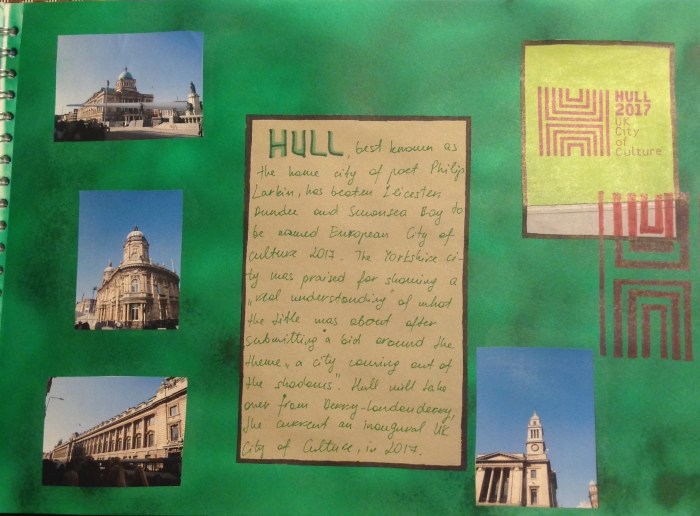 HULL, best known as
the home city of poet Philip
Larkin, has beaten Leicester,
Dundee and Swansea Bay to
be named European City of
culture 2017. The Yorkshire ci-
ty was praised for showing a
„real understanding" of what
the title was about after
submitting a bid around the
theme „a city coming out of
the shadows". Hull will take
over from Derry-Londonderry,
the current an inaugural UK
City of Culture, in 2017.
HULL
2017
UK
City
of
Culture